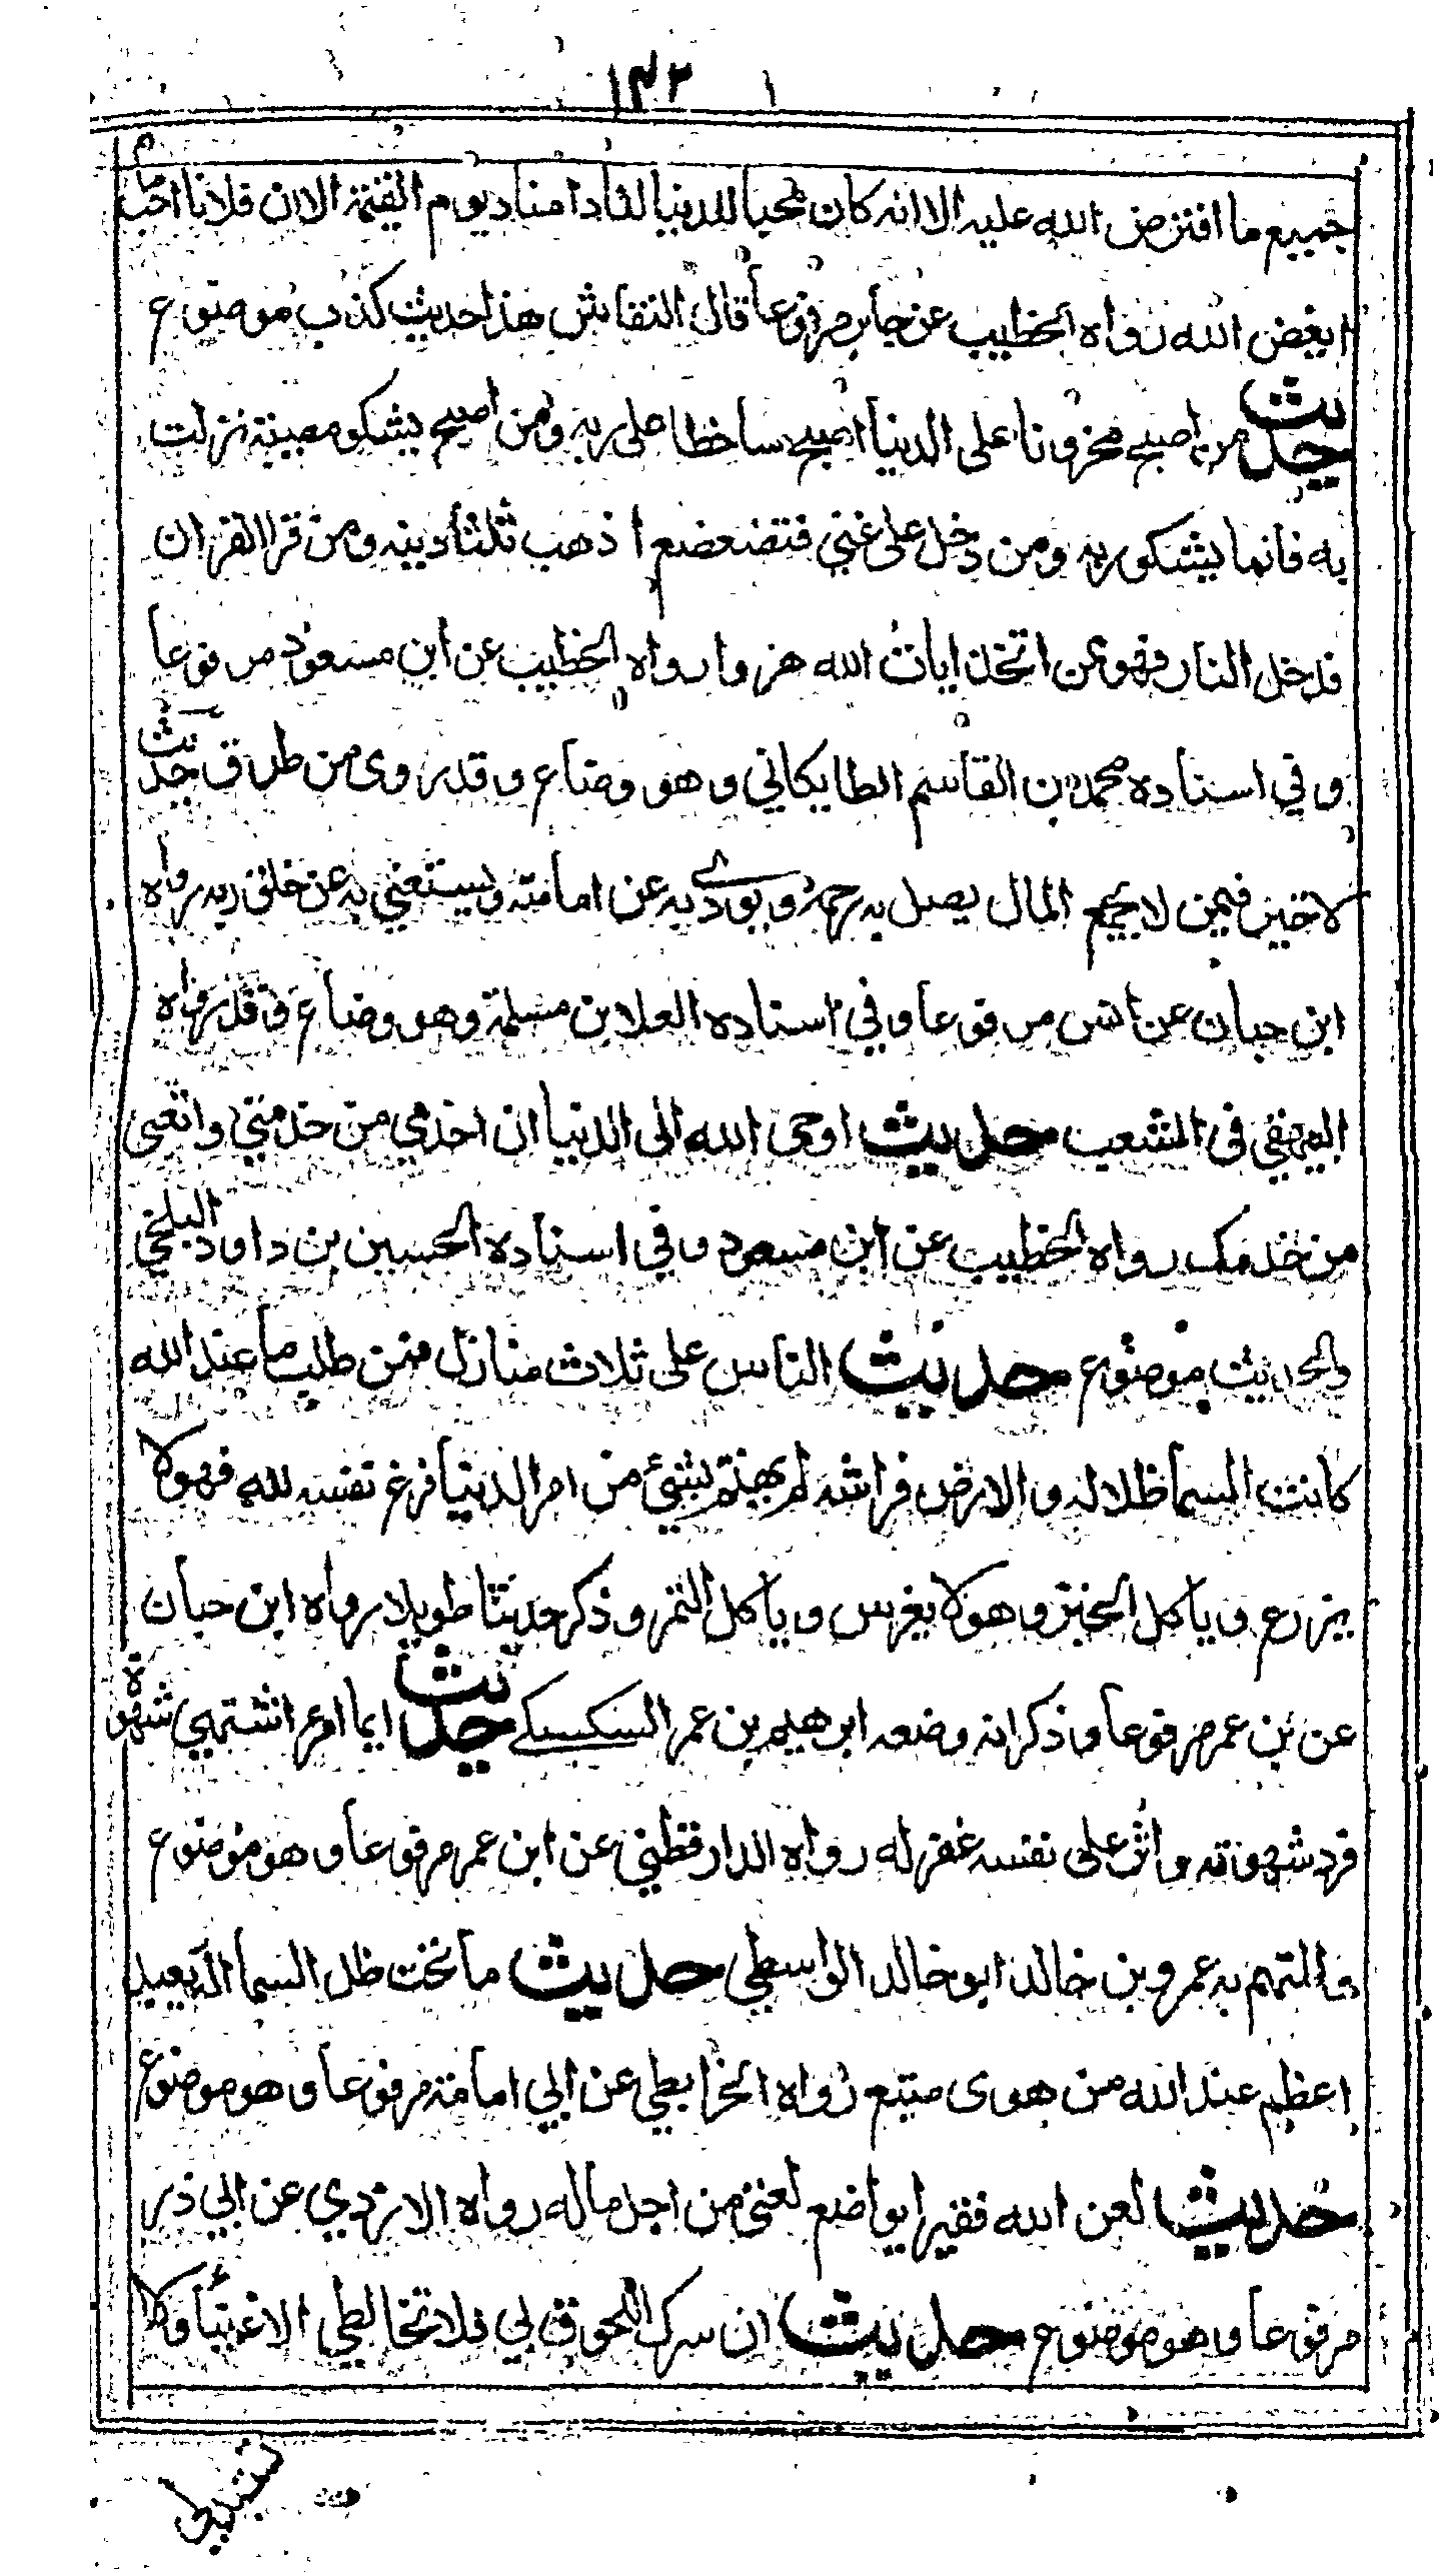 ١٤٢
جميع ما افترض الله عليه الا انه كان محبا للدنيا لنادا مناد يوم القيمة الا ان فلانا احب ما
ابغض الله رواه الخطيب عن جابر مرفوعا قال النقاش هذا حديث كذب موضوع
حديث من اصبح محزونا على الدنيا اصبح ساخطا على ربه ومن اصبح يشكو مصيبة نزلت
به فانما يشكو ربه ومن دخل على غني فتضعضع ا ذهب ثلثا دينه ومن قرا القران
فدخل النار فهو ممن اتخذ ايات الله هزوا رواه الخطيب عن ابن مسعود مرفوعا
وفي اسناده محمد بن القاسم الطايكاني وهو وضاع وقد روى من طرق حديث
لا خير فيمن لا يجمع المال يصل به رحمه ويودي به عن امانته ويستغني به عن خلق ربه رواه
ابن حبان عن انس مرفوعا وفي اسناده العلا بن مسلمة وهو وضاع وقد رواه
البيهقي في الشعب حديث اوحى الله الى الدنيا ان اخدمي من خدمني واتعبى
من خدمك رواه الخطيب عن ابن مسعود وفي اسناده الحسين بن داود البلخي
والحديث موضوع حديث الناس على ثلاث منازل فمن طلب ما عند الله
كانت السما ظلاله والارض فراشه لم يهتم بشئ من امر الدنيا فرغ نفسه لله فهو لا
يزرع وياكل الخبز وهو لا يغرس وياكل الثمر وذكر حديثا طويلا رواه ابن حبان
عن بن عمر مرفوعا وذكر انه وضعه ابرهيم بن عمر السكسكي حديث ايما امرء اشتهي شهوة
فرد شهوته واثر على نفسه غفر له رواه الدارقطني عن ابن عمر مرفوعا وهو موضوع
والمتهم به عمرو بن خالد ابو خالد الواسطي حديث ما تحت ظل السما اله يعبد
اعظم عند الله من هوى متبع رواه الخرابطي عن ابي امامة مرفوعا وهو موضوع
حديث لعن الله فقيرا يواضع لغني من اجل ماله رواه الازدي عن ابي ذر
مرفوعا وهو موضوع حديث ان سرك اللحوق بي فلا تخالطي الاغنيأ ولا